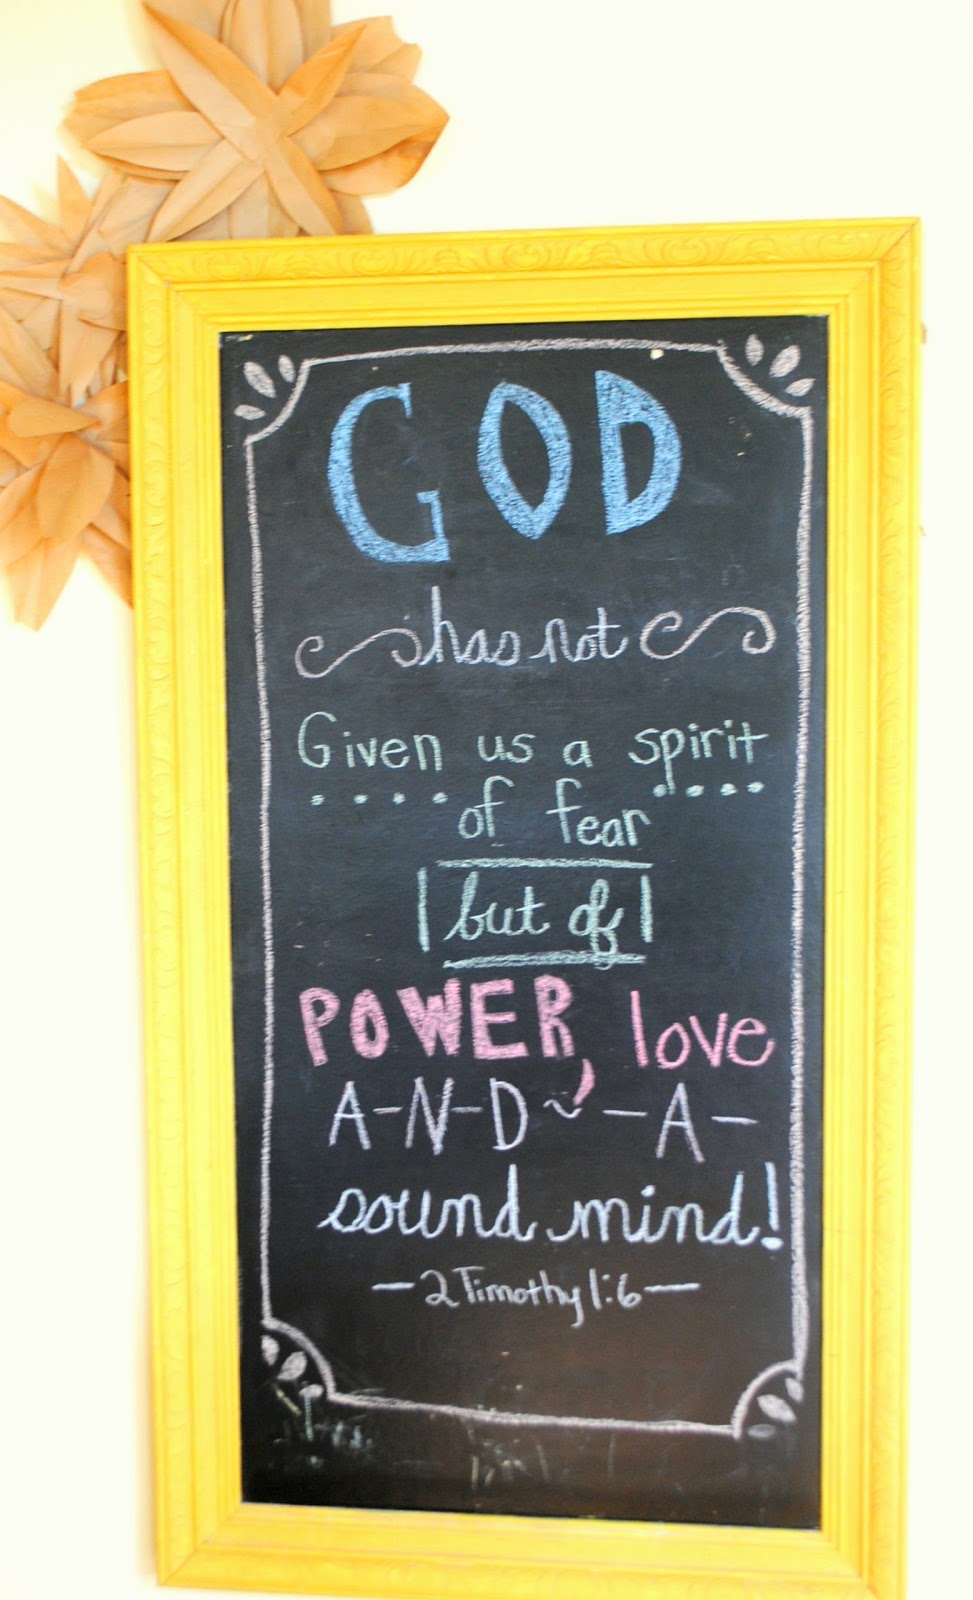 GOD
has not
Given us a spirit
of fear
but of
POWER, love
A-N-D ~ -A-
sound mind!
-2 Timothy 1:6-